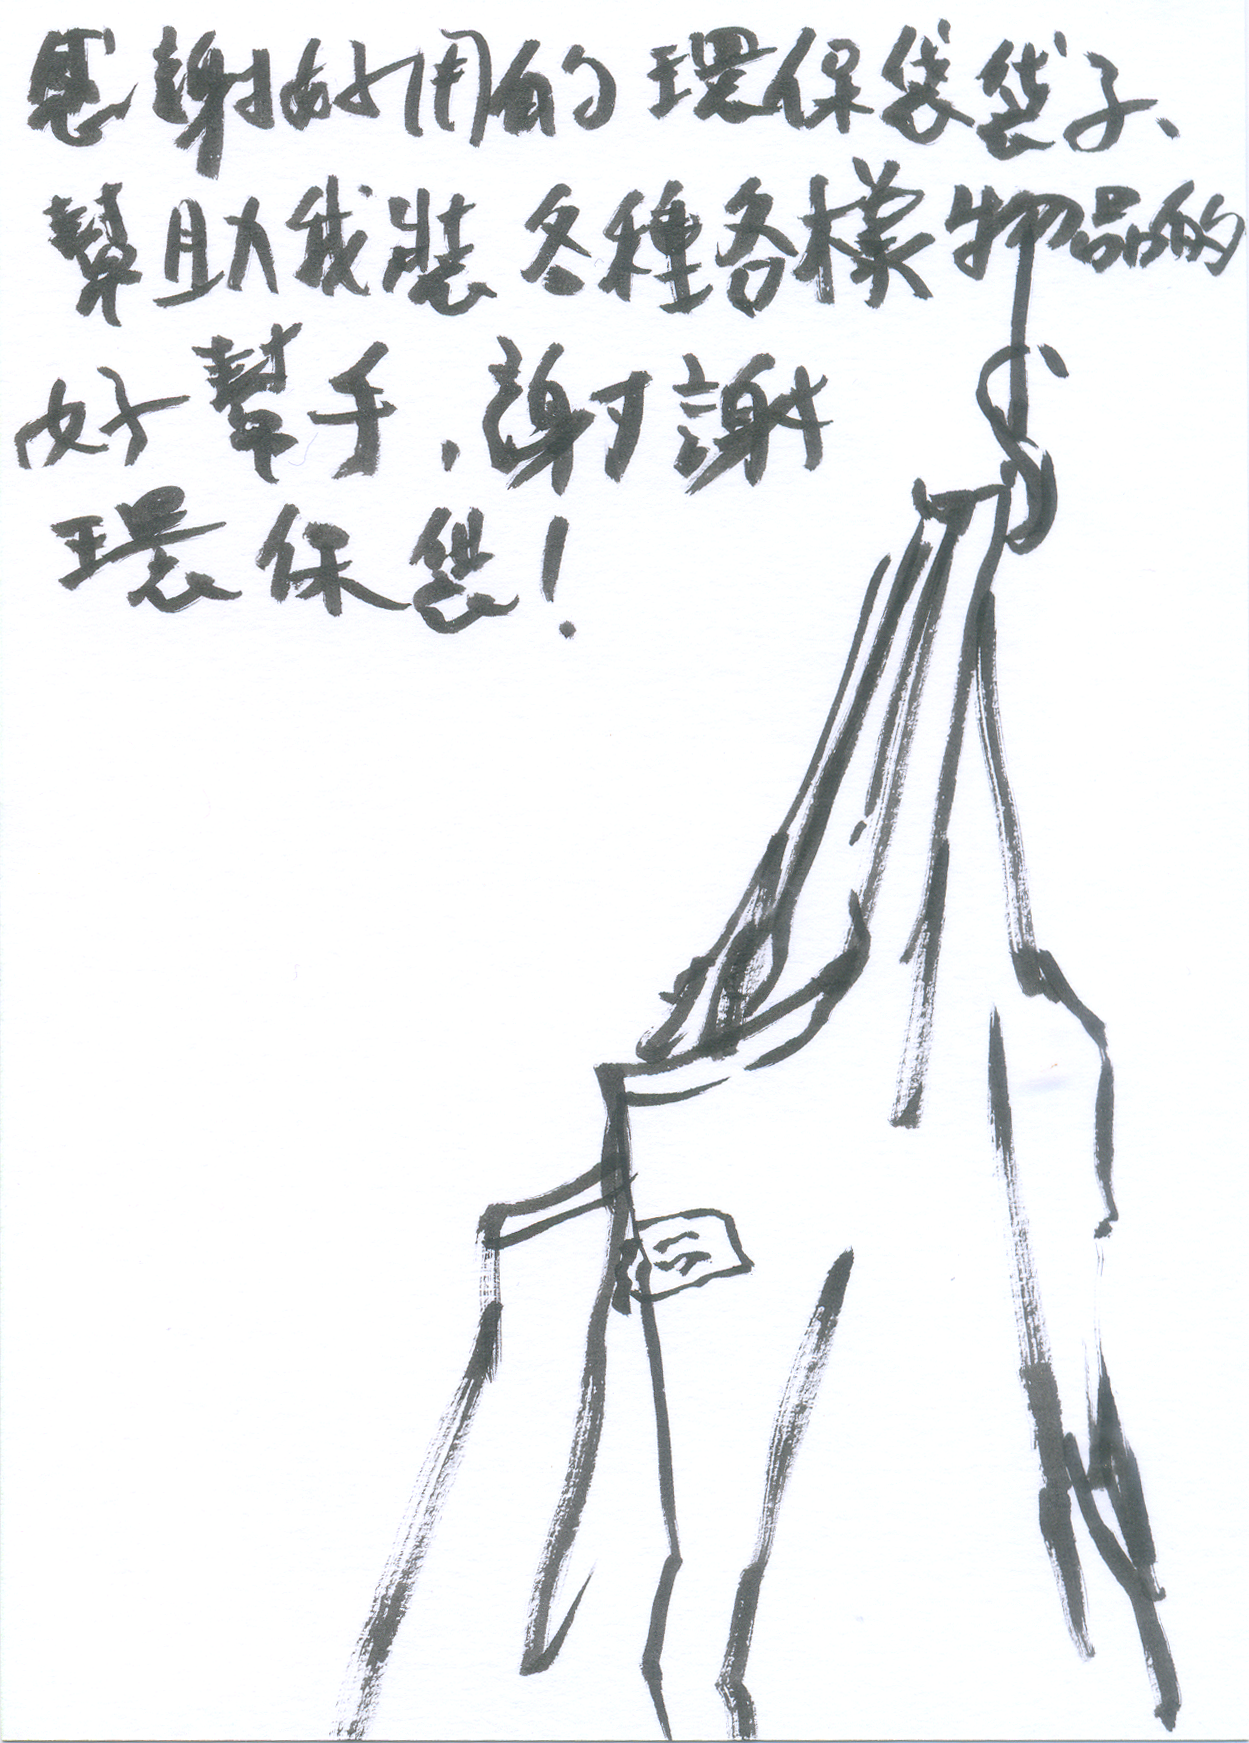 感謝好用的環保袋袋子、
幫助我裝各種各樣物品的
好幫手,謝謝
環保袋!